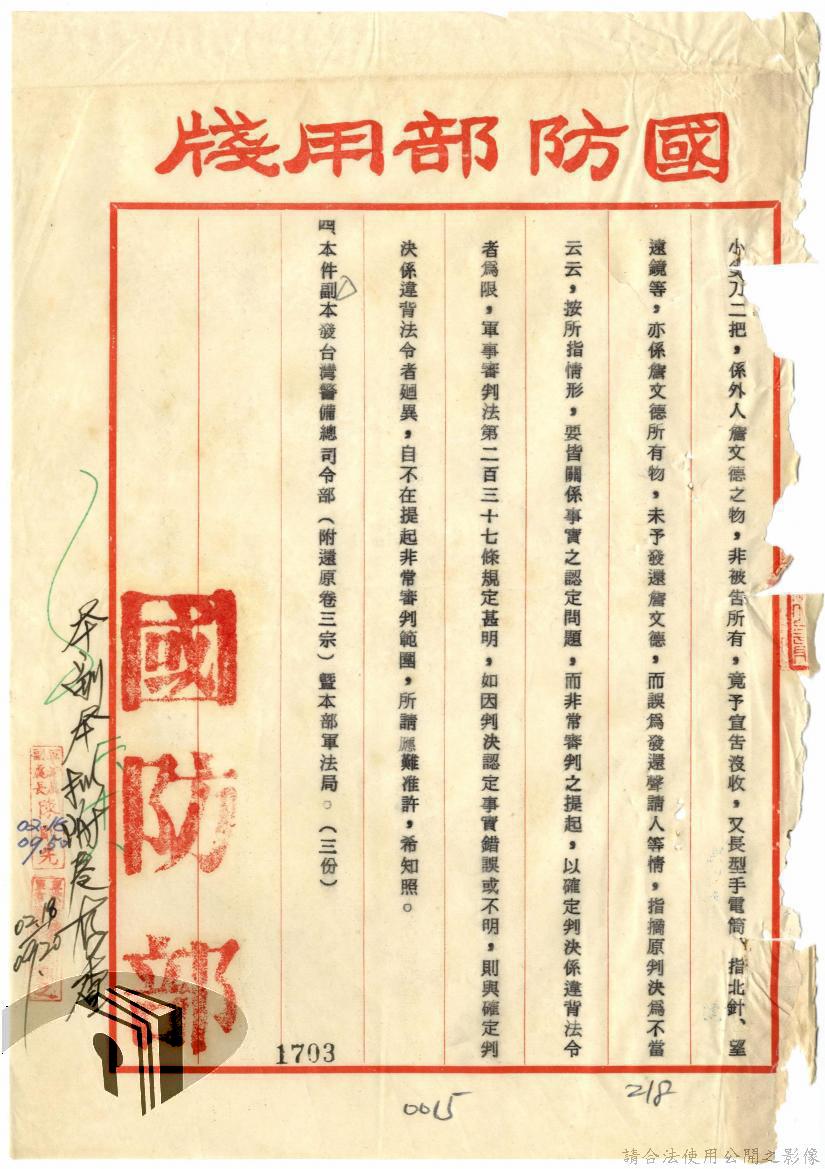 國防部用牋
小刀二把，係外人詹文德之物，非被告所有，竟予宣告沒收，又長型手電筒、指北針、望
遠鏡等，亦係詹文德所有物，未予發還詹文德，而誤爲發還聲請人等情，指摘原判決爲不當
云云，按所指情形，要皆關係事實之認定問題，而非常審判之提起，以確定判決係違背法令
者爲限，軍事審判法第二百三十七條規定甚明，如因判決認定事實錯誤或不明，則與確定判
決係違背法令者迴異，自不在提起非常審判範圍，所請應難准許，希知照。
四、本件副本發台灣警備總司令部（附還原卷三宗）暨本部軍法局。（三份）
國防部
1703
本副本擬附卷存查
副處長
02.18
0950
02.18
0920
0015
218
請合法使用公開之影像